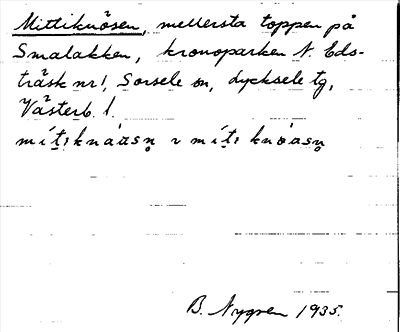 Mittiknösen, mellersta toppen på
Smalakken, kronoparken N. Eds-
träsk nr 1, Sorsele sn, Lycksele tg,
Västerb. l.
B. Nygren 1935.